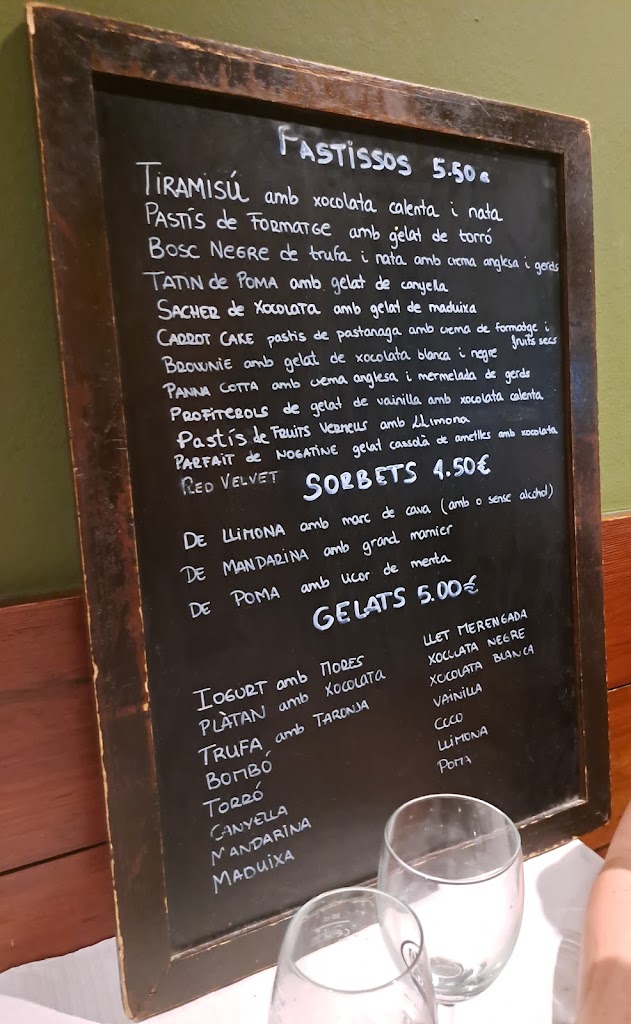 PASTISSOS 5.50€
TIRAMISÚ amb xocolata calenta i nata
PASTÍS de FORMATGE amb gelat de torró
BOSC NEGRE de trufa i nata amb crema anglesa i gerds
TATIN de POMA amb gelat de canyella
SACHER de XOCOLATA amb gelat de maduixa
CARROT CAKE pastis de pastanaga amb crema de formatge i
fruits secs
BROWNIE amb gelat de xocolata blanca i negre
PANNA COTTA amb crema anglesa i mermelada de gerds
PROFITEROLS de gelat de vainilla amb xocolata calenta
Pastís de FRUITS VERMELLS amb LLimona
PARFAIT de NOGATINE gelat cassolà de ametlles amb xocolata
RED VELVET
SORBETS 4.50€
DE LLIMONA amb marc de cava (amb o sense alcohol)
DE MANDARINA amb grand marnier
DE POMA amb licor de menta
GELATS 5.00€
IOGURT amb MORES
PLÀTAN amb XOCOLATA
TRUFA amb TARONJA
BOMBÓ
TORRÓ
CANYELLA
MANDARINA
MADUIXA
LLET MERENGADA
XOCOLATA NEGRE
XOCOLATA BLANCA
VAINILLA
COCO
LLIMONA
POMA